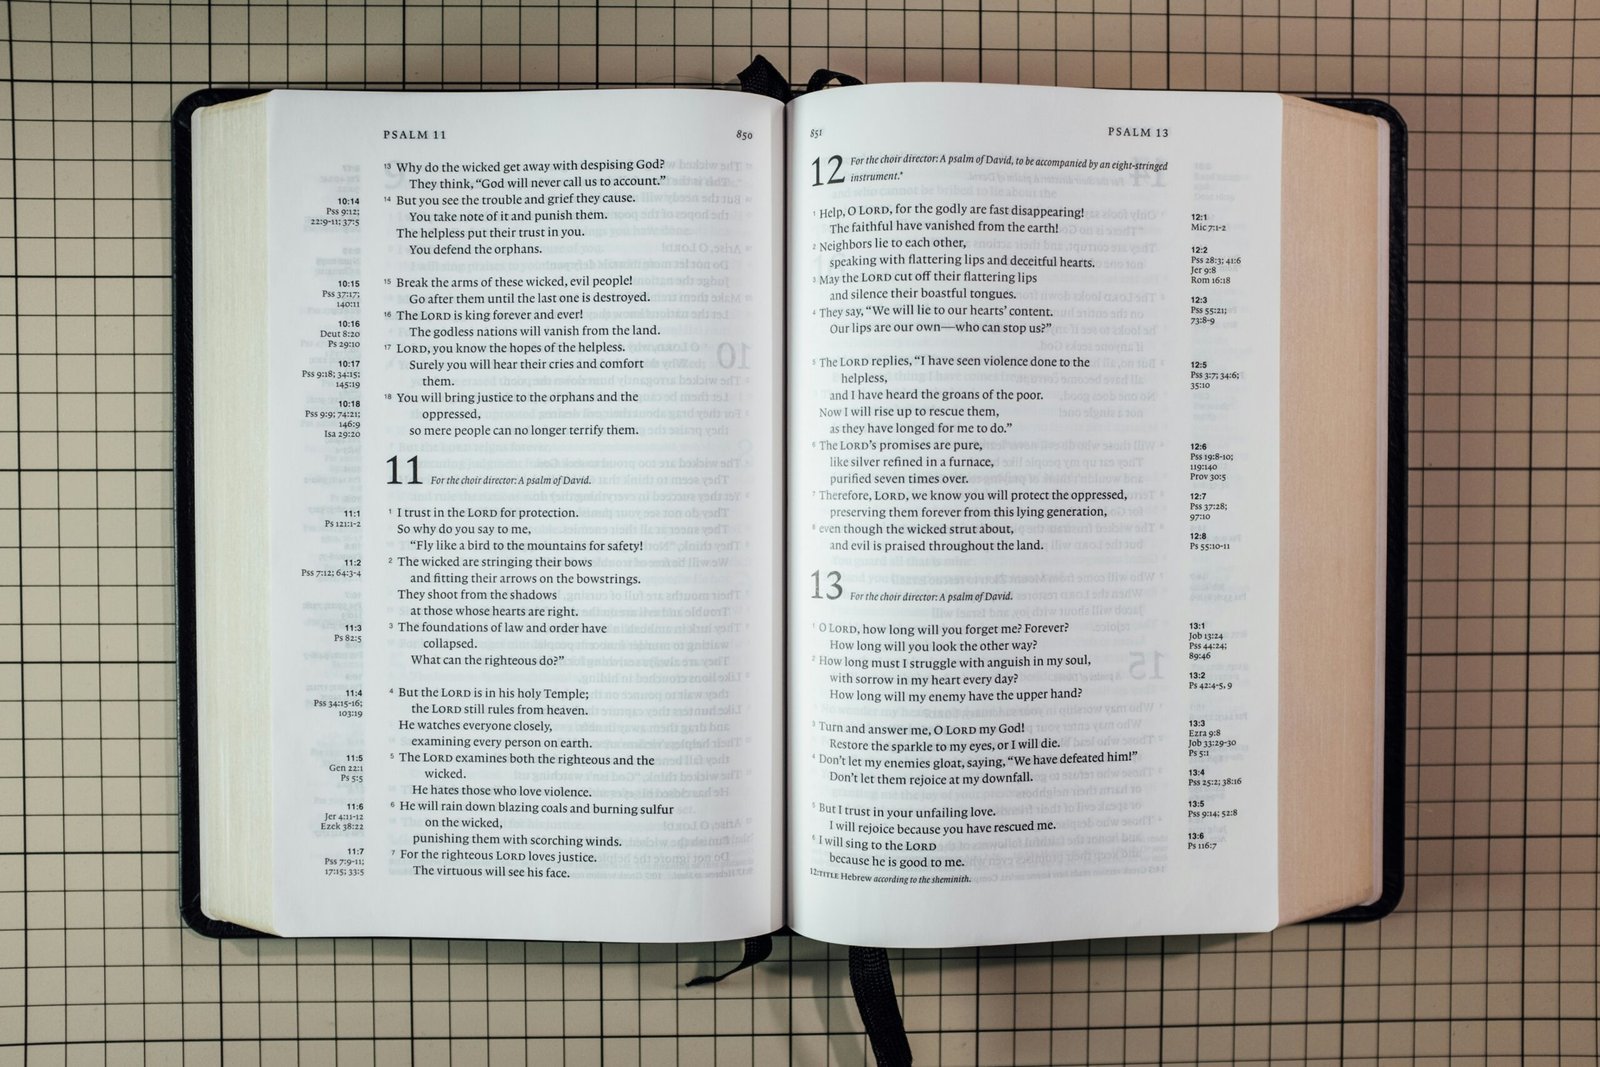 PSALM 11
850
13 Why do the wicked get away with despising God?
They think, “God will never call us to account.”
14 But you see the trouble and grief they cause.
You take note of it and punish them.
The helpless put their trust in you.
You defend the orphans.
15 Break the arms of these wicked, evil people!
Go after them until the last one is destroyed.
16 The LORD is king forever and ever!
The godless nations will vanish from the land.
17 LORD, you know the hopes of the helpless.
Surely you will hear their cries and comfort
them.
18 You will bring justice to the orphans and the
oppressed,
so mere people can no longer terrify them.
11 For the choir director: A psalm of David.
1 I trust in the LORD for protection.
So why do you say to me,
“Fly like a bird to the mountains for safety!
2 The wicked are stringing their bows
and fitting their arrows on the bowstrings.
They shoot from the shadows
at those whose hearts are right.
3 The foundations of law and order have
collapsed.
What can the righteous do?”
4 But the LORD is in his holy Temple;
the LORD still rules from heaven.
He watches everyone closely,
examining every person on earth.
5 The LORD examines both the righteous and the
wicked.
He hates those who love violence.
6 He will rain down blazing coals and burning sulfur
on the wicked,
punishing them with scorching winds.
7 For the righteous LORD loves justice.
The virtuous will see his face.
10:14
Pss 9:12;
22:9-11; 37:5
10:15
Pss 37:17;
140:11
10:16
Deut 8:20
Ps 29:10
10:17
Pss 9:18; 34:15;
145:19
10:18
Pss 9:9; 74:21;
146:9
Isa 29:20
11:1
Ps 121:1-2
11:2
Pss 7:12; 64:3-4
11:3
Ps 82:5
11:4
Pss 34:15-16;
103:19
11:5
Gen 22:1
Ps 5:5
11:6
Jer 4:11-12
Ezek 38:22
11:7
Pss 7:9-11;
17:15; 33:5
851
PSALM 13
12 For the choir director: A psalm of David, to be accompanied by an eight-stringed
instrument.*
1 Help, O LORD, for the godly are fast disappearing!
The faithful have vanished from the earth!
2 Neighbors lie to each other,
speaking with flattering lips and deceitful hearts.
3 May the LORD cut off their flattering lips
and silence their boastful tongues.
4 They say, “We will lie to our hearts’ content.
Our lips are our own—who can stop us?”
5 The LORD replies, “I have seen violence done to the
helpless,
and I have heard the groans of the poor.
Now I will rise up to rescue them,
as they have longed for me to do.”
6 The LORD’s promises are pure,
like silver refined in a furnace,
purified seven times over.
7 Therefore, LORD, we know you will protect the oppressed,
preserving them forever from this lying generation,
8 even though the wicked strut about,
and evil is praised throughout the land.
13 For the choir director: A psalm of David.
1 O LORD, how long will you forget me? Forever?
How long will you look the other way?
2 How long must I struggle with anguish in my soul,
with sorrow in my heart every day?
How long will my enemy have the upper hand?
3 Turn and answer me, O LORD my God!
Restore the sparkle to my eyes, or I will die.
4 Don’t let my enemies gloat, saying, “We have defeated him!”
Don’t let them rejoice at my downfall.
5 But I trust in your unfailing love.
I will rejoice because you have rescued me.
6 I will sing to the LORD
because he is good to me.
12:TITLE Hebrew according to the sheminith.
12:1
Mic 7:1-2
12:2
Pss 28:3; 41:6
Jer 9:8
Rom 16:18
12:3
Pss 55:21;
73:8-9
12:5
Pss 3:7; 34:6;
35:10
12:6
Pss 19:8-10;
119:140
Prov 30:5
12:7
Pss 37:28;
97:10
12:8
Ps 55:10-11
13:1
Job 13:24
Pss 44:24;
89:46
13:2
Ps 42:4-5, 9
13:3
Ezra 9:8
Job 33:29-30
Ps 5:1
13:4
Pss 25:2; 38:16
13:5
Pss 9:14; 52:8
13:6
Ps 116:7